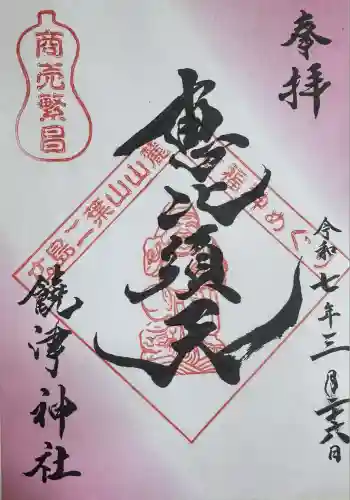 奉拝
令和七年三月二十六日
恵比須天
商売繁昌
広島二葉山山麓
福めぐり
饒津神社